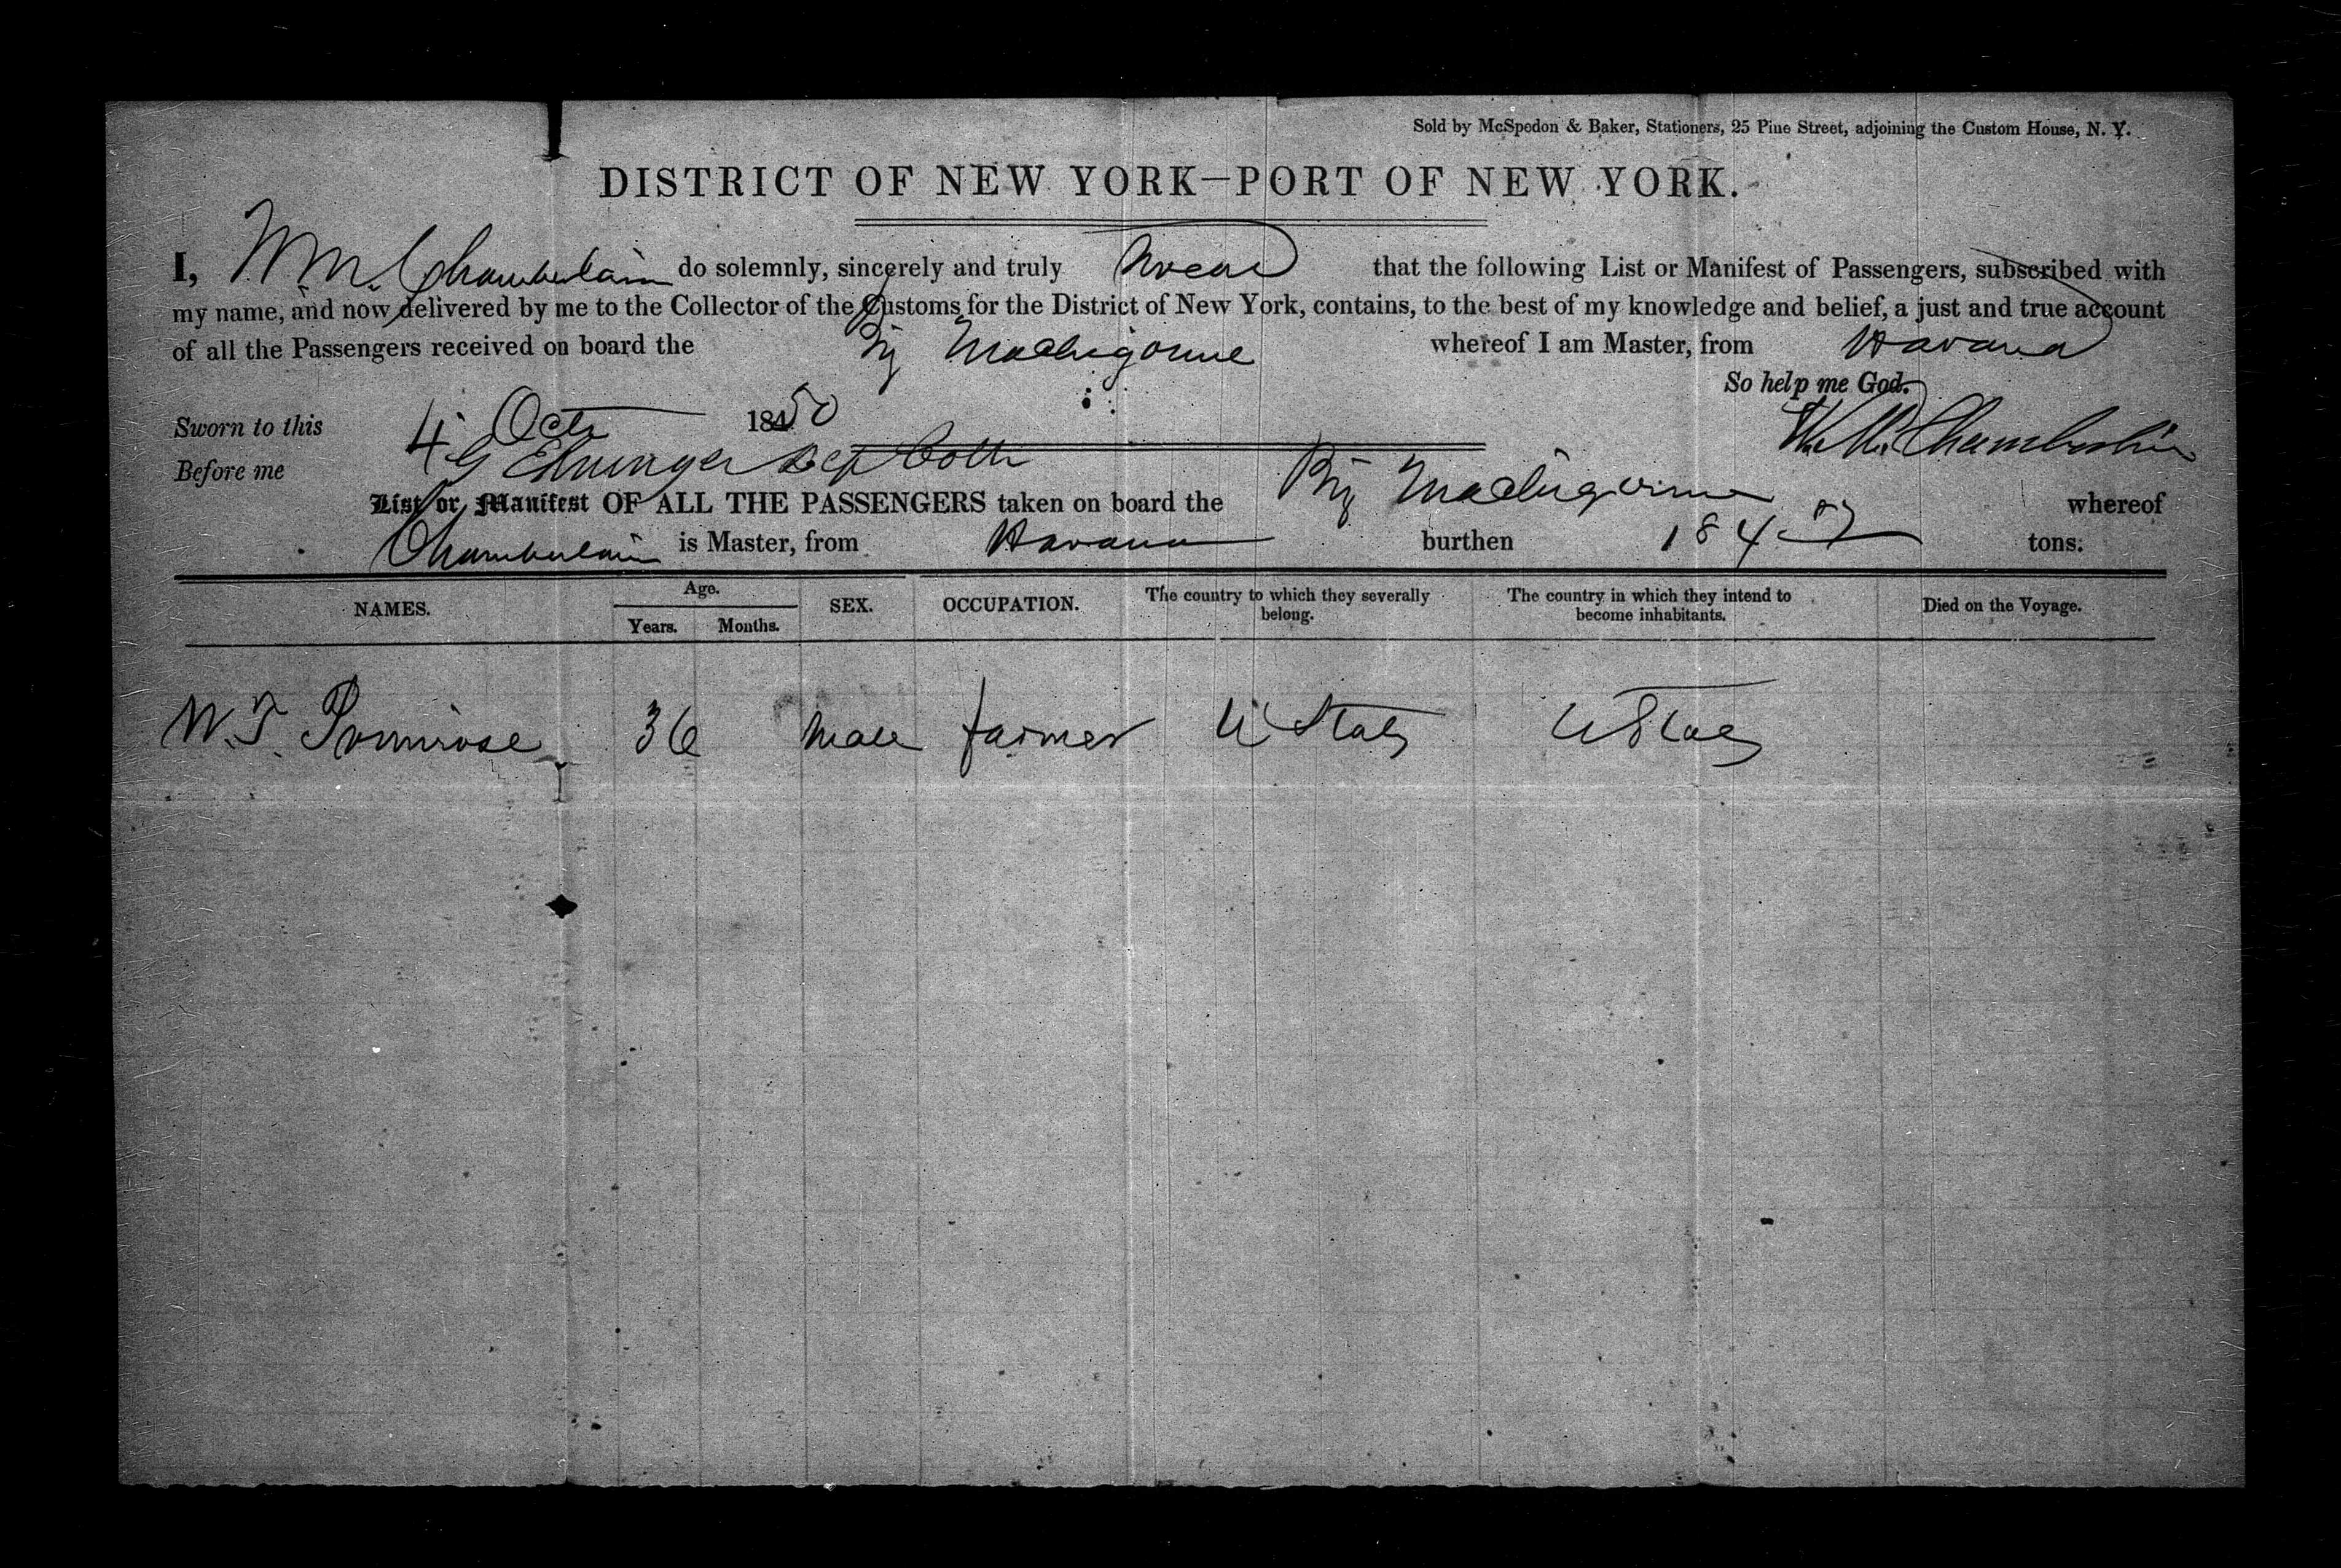 Sold by McSpedon & Baker, Stationers, 25 Pine Street, adjoining the Custom House, N. Y.
DISTRICT OF NEW YORK—PORT OF NEW YORK.
I, W. M. Chamberlain do solemnly, sincerely and truly swear that the following List or Manifest of Passengers, subscribed with
my name, and now delivered by me to the Collector of the Customs for the District of New York, contains, to the best of my knowledge and belief, a just and true account
of all the Passengers received on board the Brig Machigonne whereof I am Master, from Havana
So help me God.
Sworn to this 4 Oct 1850 W. M. Chamberlain
Before me Dep Coll
List or Manifest OF ALL THE PASSENGERS taken on board the Brig Machigonne whereof
Chamberlain is Master, from Havana burthen 184 tons.
NAMES. Age. Years. Months. SEX. OCCUPATION. The country to which they severally belong. The country in which they intend to become inhabitants. Died on the Voyage.
W. T. Primrose 36 Male farmer U States U States